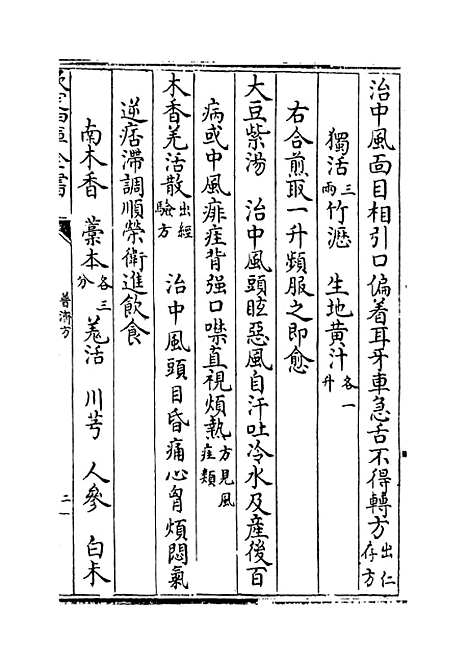 治中風面目相引口偏着耳牙車急舌不得轉方出仁存方
獨活三兩竹瀝 生地黄汁各一升
右合煎取一升頻服之即愈
大豆紫湯 治中風頭眩惡風自汗吐冷水及産後百
病或中風痱痓背强口噤直視煩熱方見風痓類
木香羌活散出經驗方 治中風頭目昏痛心胷煩悶氣
逆痞滯調順榮衛進飲食
南木香 藁本各三分 羗活 川芎 人參 白术
普濟方
二一